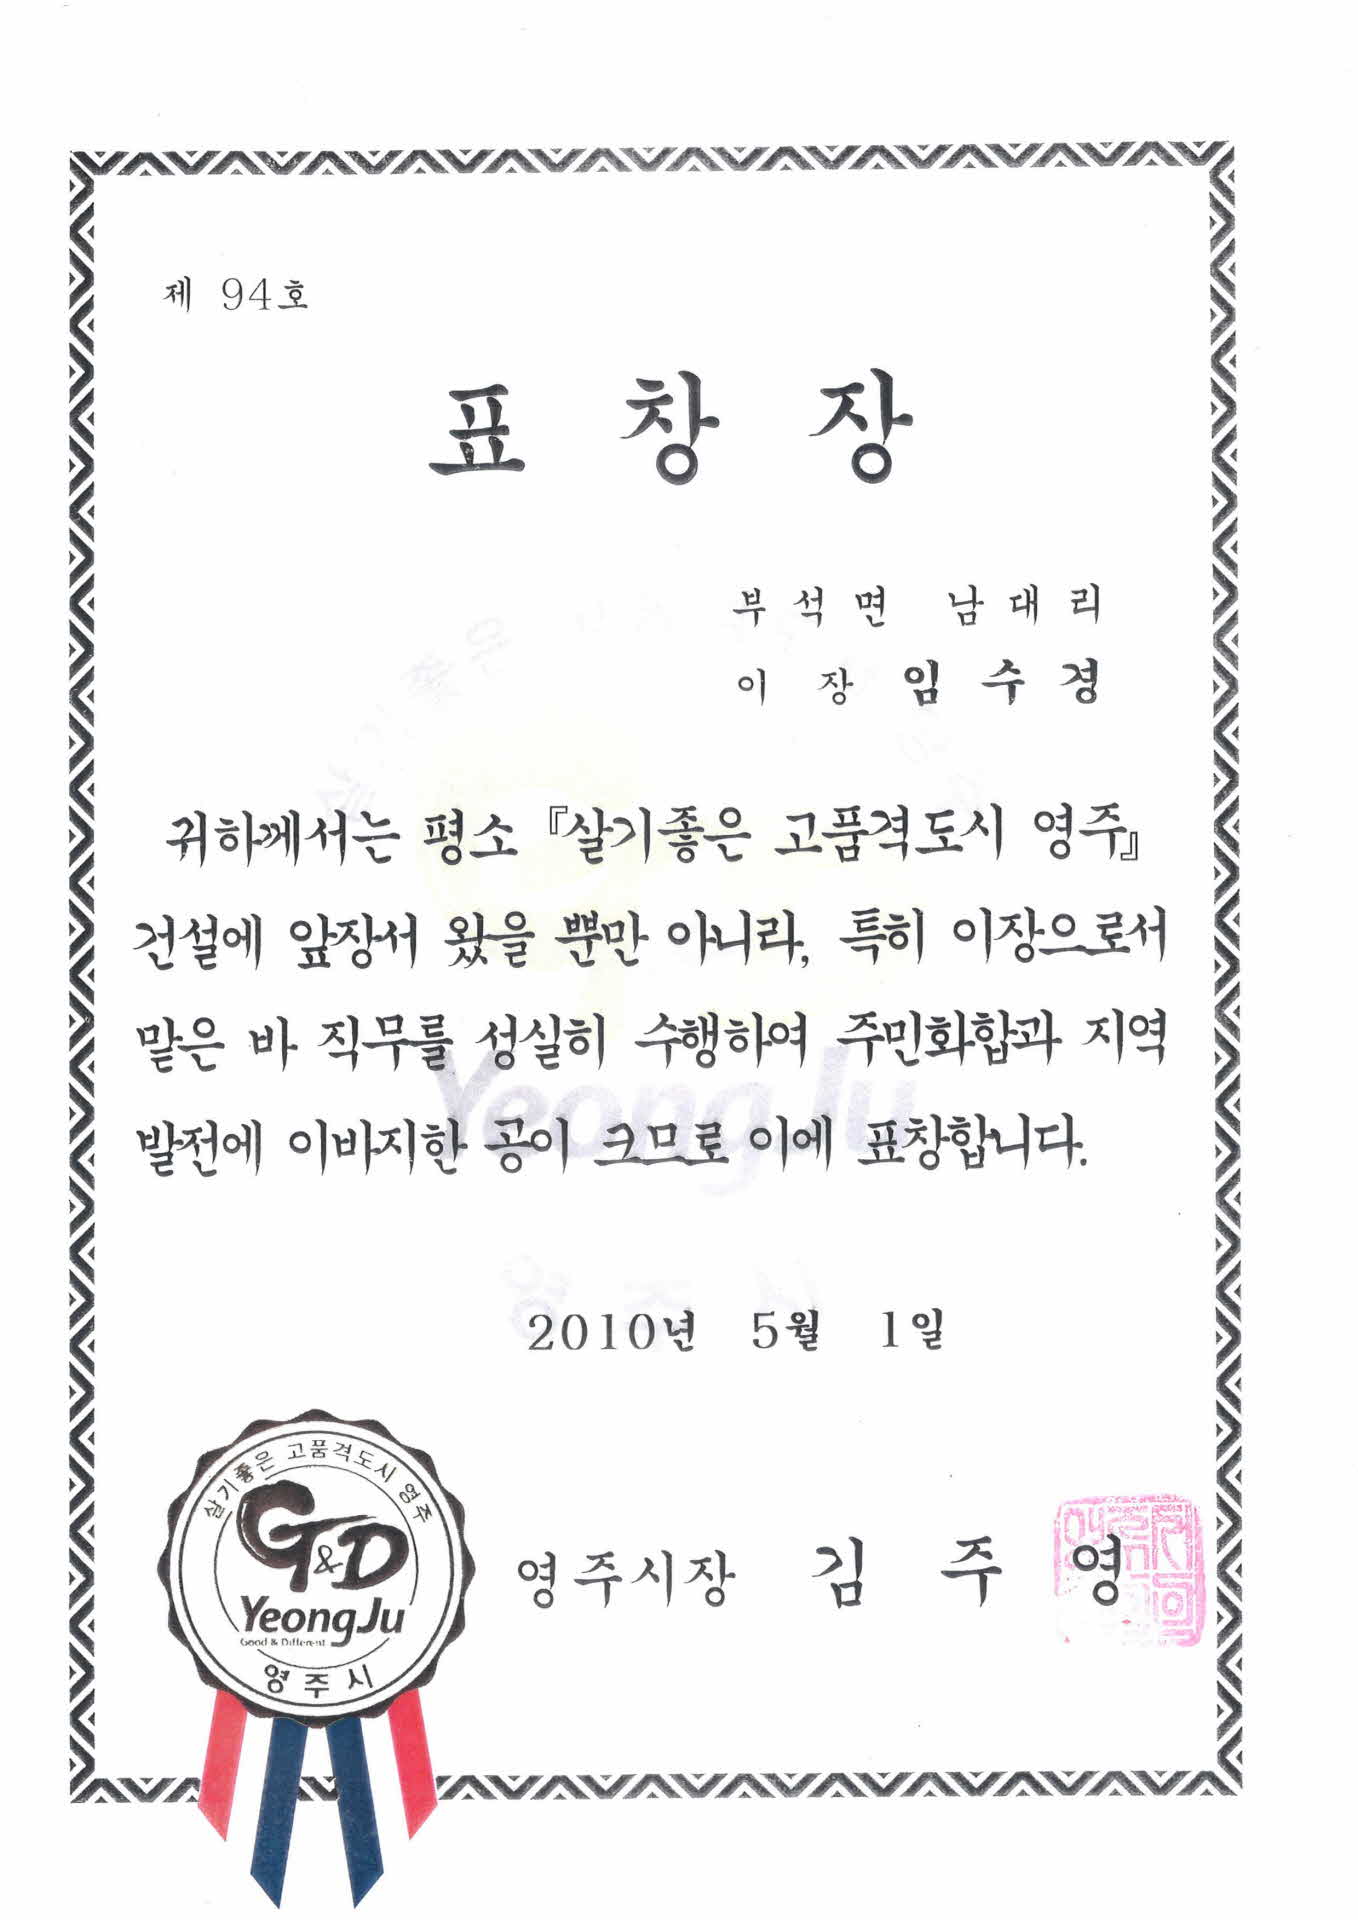 제 94호
표 창 장
부석면 남대리
이 장 임 수 경
귀하께서는 평소 『살기좋은 고품격도시 영주』
건설에 앞장서 왔을 뿐만 아니라, 특히 이장으로서
맡은 바 직무를 성실히 수행하여 주민화합과 지역
발전에 이바지한 공이 크므로 이에 표창합니다.
2010년 5월 1일
살기좋은 고품격도시 영주
G&D
YeongJu
Good & Different
영주시
영주시장 김 주 영